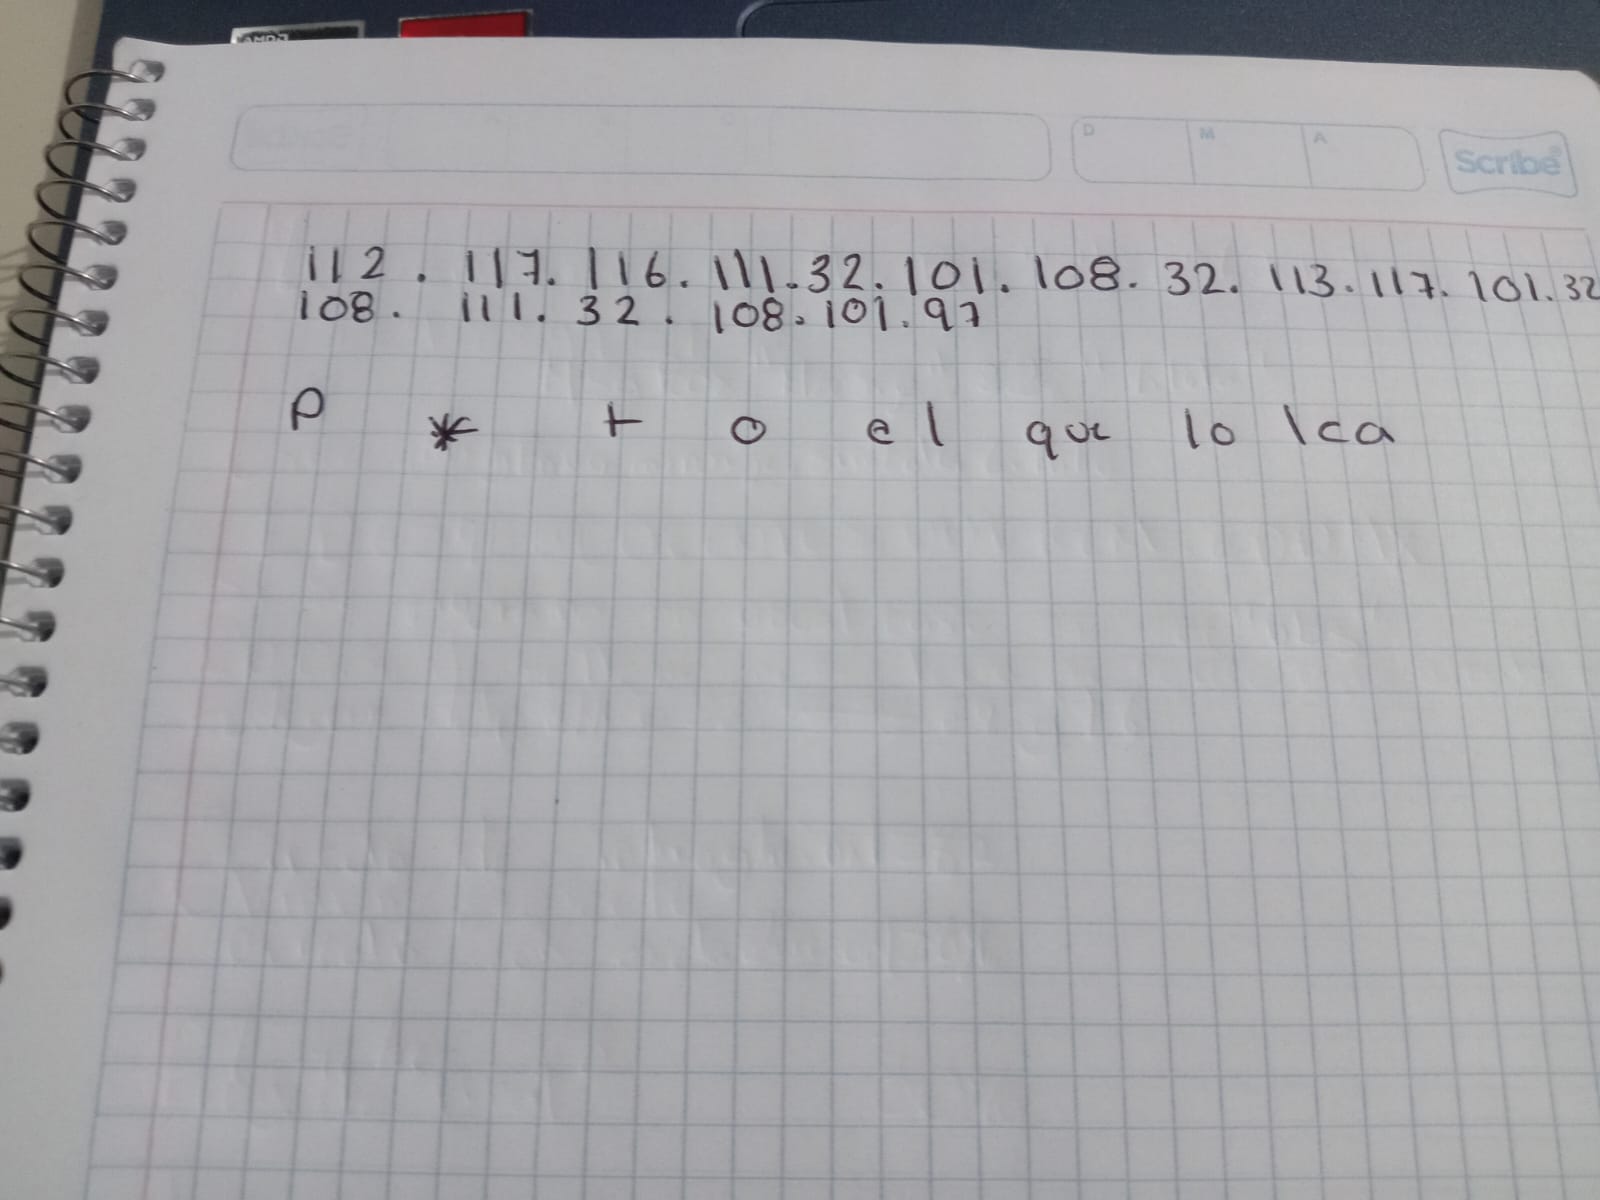 AMD
D M A Scribe
112 . 117. 116. 111. 32. 101. 108. 32. 113. 117. 101. 32
108. 111. 32. 108. 101. 97
P * t o el que lo lea